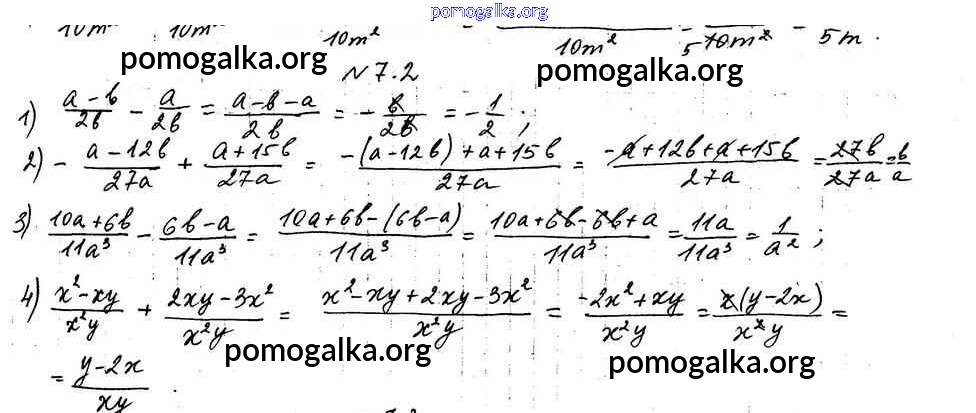 pomogalka.org
10m 10m 10m² 10m² 5 10m² - 5m.
pomogalka.org pomogalka.org
№ 7.2
1) (a-b)/2b - a/2b = (a-b-a)/2b = - b/2b = - 1/2 ;
2) - (a-12b)/27a + (a+15b)/27a = (-(a-12b)+a+15b)/27a = (-a+12b+a+15b)/27a = 27b/27a = b/a
3) (10a+6b)/11a³ - (6b-a)/11a³ = (10a+6b-(6b-a))/11a³ = (10a+6b-6b+a)/11a³ = 11a/11a³ = 1/a² ;
4) (x²-xy)/x²y + (2xy-3x²)/x²y = (x²-xy+2xy-3x²)/x²y = (-2x²+xy)/x²y = x(y-2x)/x²y =
pomogalka.org pomogalka.org
= (y-2x)/xy .